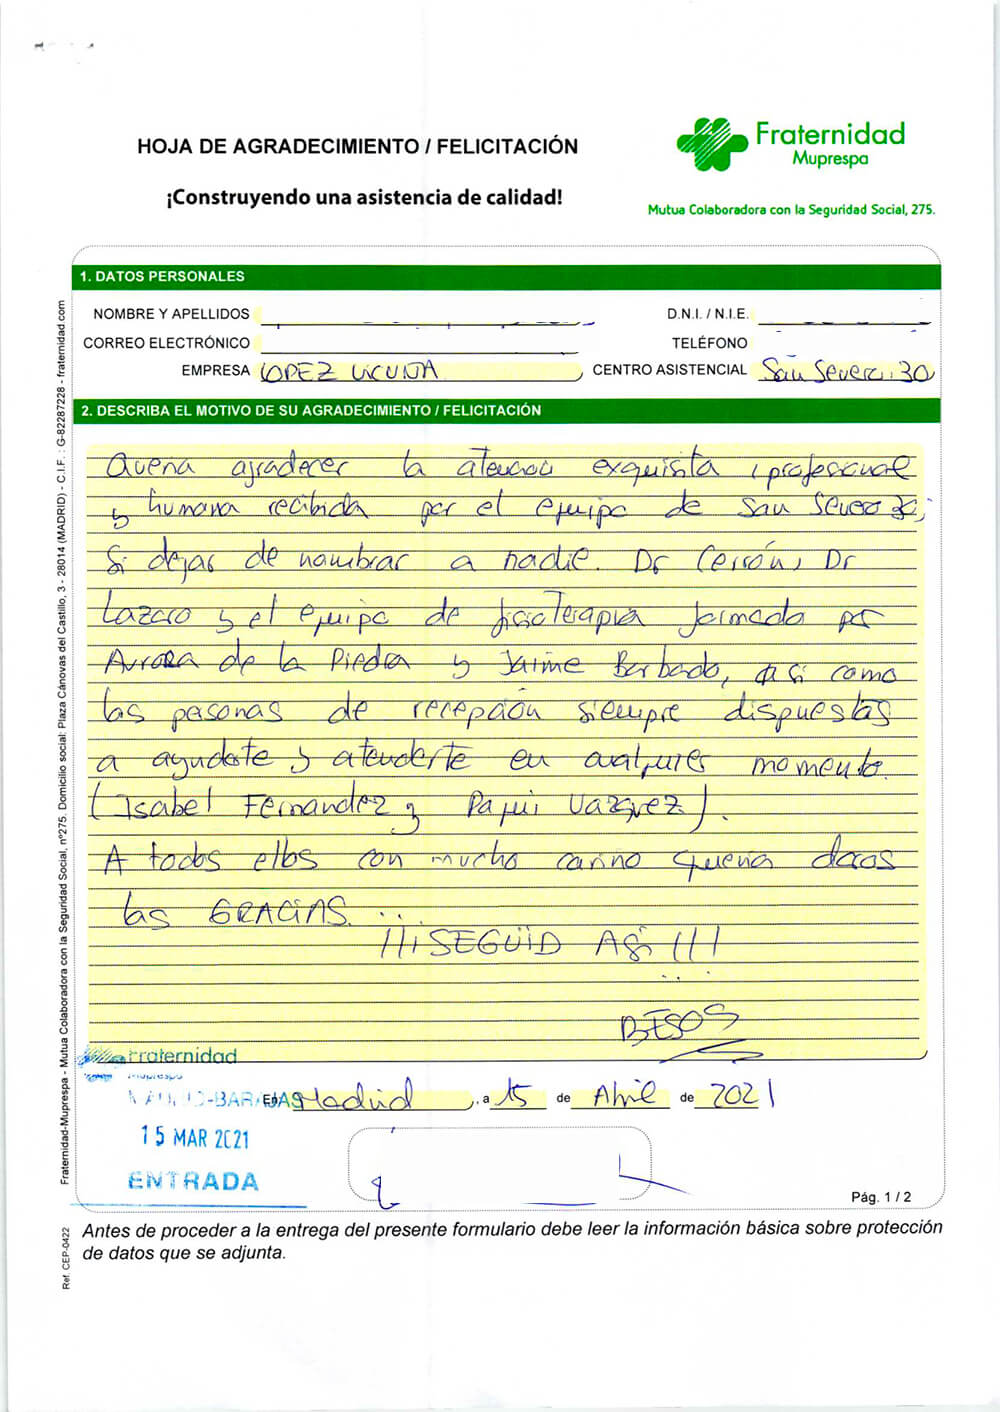 HOJA DE AGRADECIMIENTO / FELICITACIÓN
¡Construyendo una asistencia de calidad!
Fraternidad
Muprespa
Mutua Colaboradora con la Seguridad Social, 275.
1. DATOS PERSONALES
NOMBRE Y APELLIDOS
D.N.I. / N.I.E.
CORREO ELECTRÓNICO
TELÉFONO
EMPRESA LOPEZ VICUÑA CENTRO ASISTENCIAL San Severo, 30
2. DESCRIBA EL MOTIVO DE SU AGRADECIMIENTO / FELICITACIÓN
Queria agradecer la atencion exquisita, profesional
y humana recibida por el equipo de San Severo 30,
Si dejar de nombrar a nadie. Dr Cerrón, Dr
Lazaro y el equipo de fisioterapia formado por
Aurora de la Piedra y Jaime Barbado, asi como
las pesonas de recepción siempre dispuestas
a ayudarte y atenderte en cualquier momento.
(Isabel Fernandez y Paqui Vazquez).
A todos ellos con mucho cariño queria daros
las GRACIAS...
¡¡¡SEGUID ASÍ!!!
BESOS
Fraternidad
Muprespa
-BARAJAS
En Madrid, a 15 de Abril de 2021
15 MAR 2021
ENTRADA
Pág. 1 / 2
Antes de proceder a la entrega del presente formulario debe leer la información básica sobre protección
de datos que se adjunta.
Fraternidad-Muprespa - Mutua Colaboradora con la Seguridad Social, nº275. Domicilio social: Plaza Cánovas del Castillo, 3 - 28014 (MADRID) - C.I.F. : G-82287228 - fraternidad.com
Ref. CEP-0422